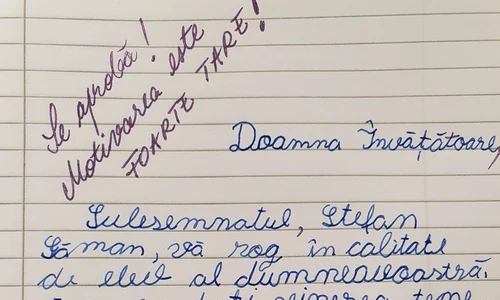 Se aprobă!
Motivarea este
FOARTE TARE!
Doamna Învățătoare,
Sulesemnatul, Ștefan
Găman, vă rog în calitate
de elev al dumneavoastră,